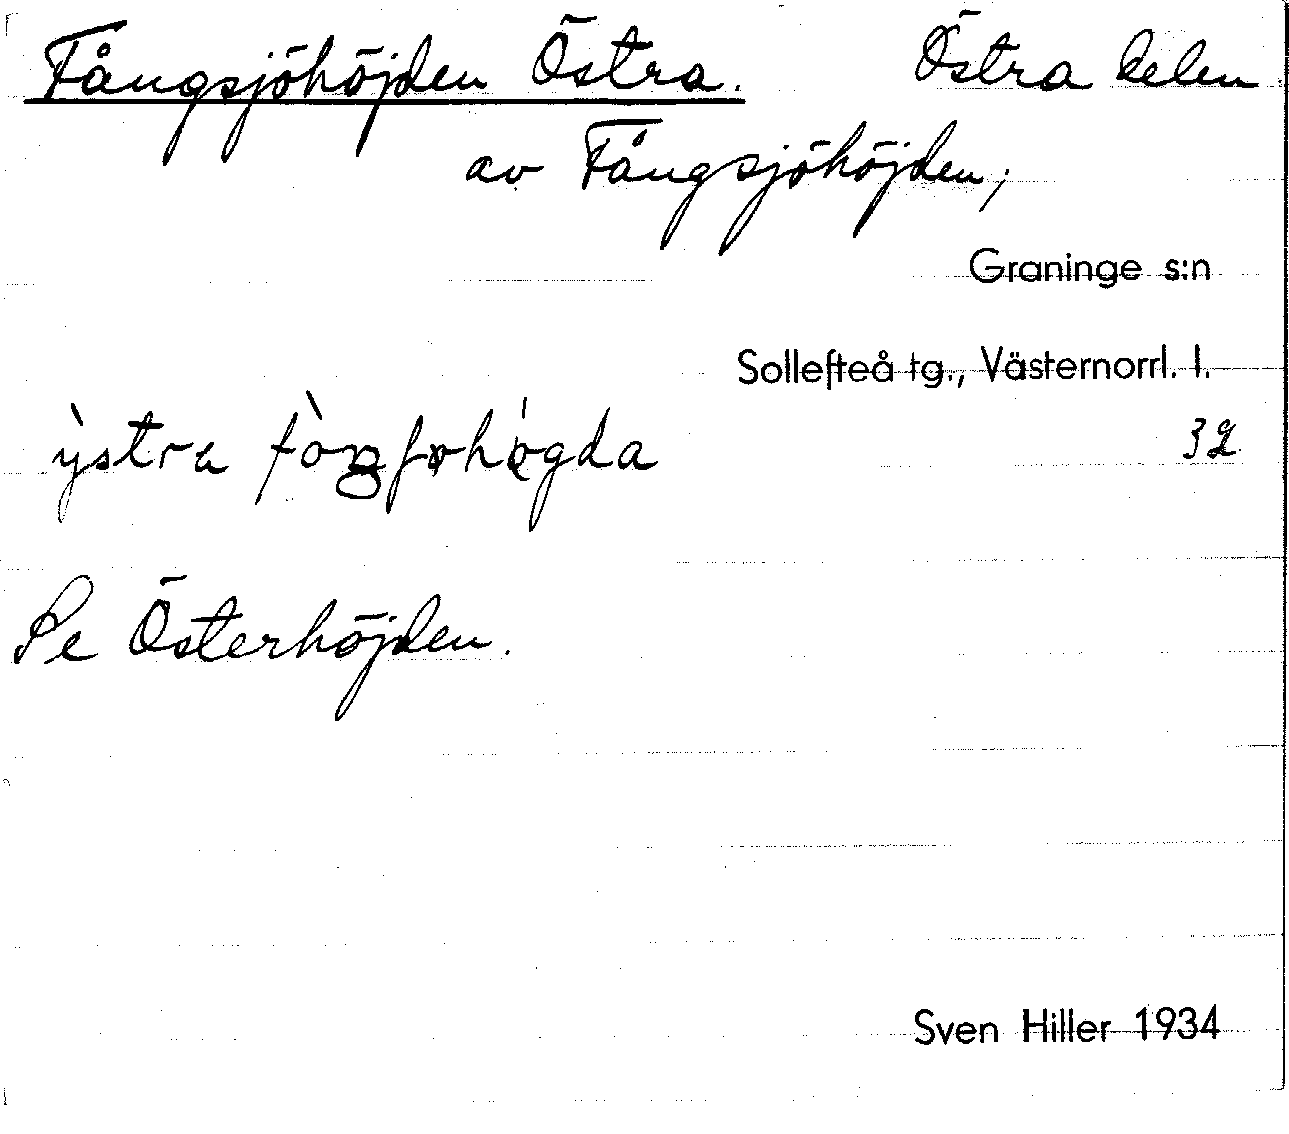 Fångsjöhöjden Östra. Östra delen
av Fångsjöhöjden,
Graninge s:n
Sollefteå tg., Västernorrl. l.
32
Se Österhöjden.
Sven Hiller 1934